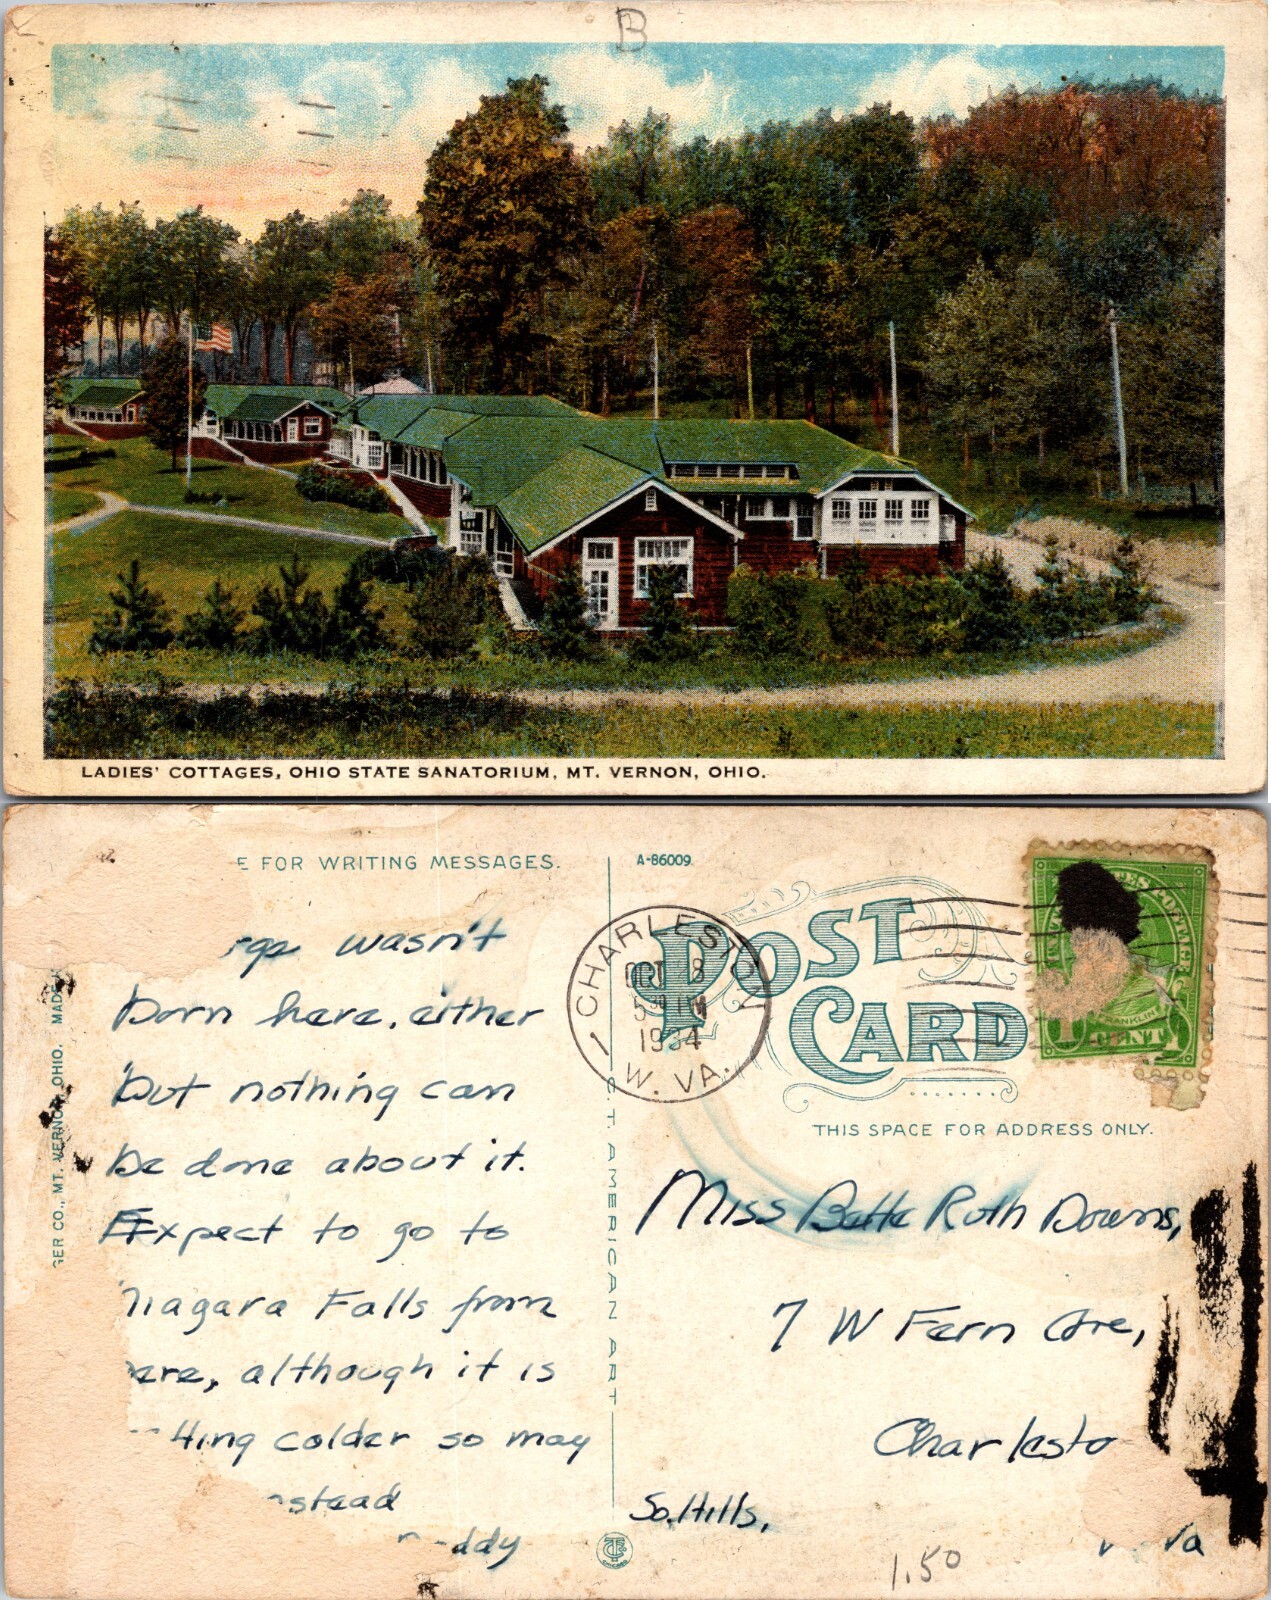 B
LADIES' COTTAGES, OHIO STATE SANATORIUM, MT. VERNON, OHIO.
E FOR WRITING MESSAGES.
A-86009
POST
CARD
CHARLESTON
OCT 28
1934
W. VA.
CENT
THIS SPACE FOR ADDRESS ONLY.
GER CO., MT. VERNON, OHIO. MADE
C.T. AMERICAN ART
wasn't
born here, either
but nothing can
be done about it.
Expect to go to
Niagara Falls from
here, although it is
colder so may
stead
Miss Bette Ruth Downs,
7 W Fern Ave,
Charlesto
So. Hills,
Va
1.50